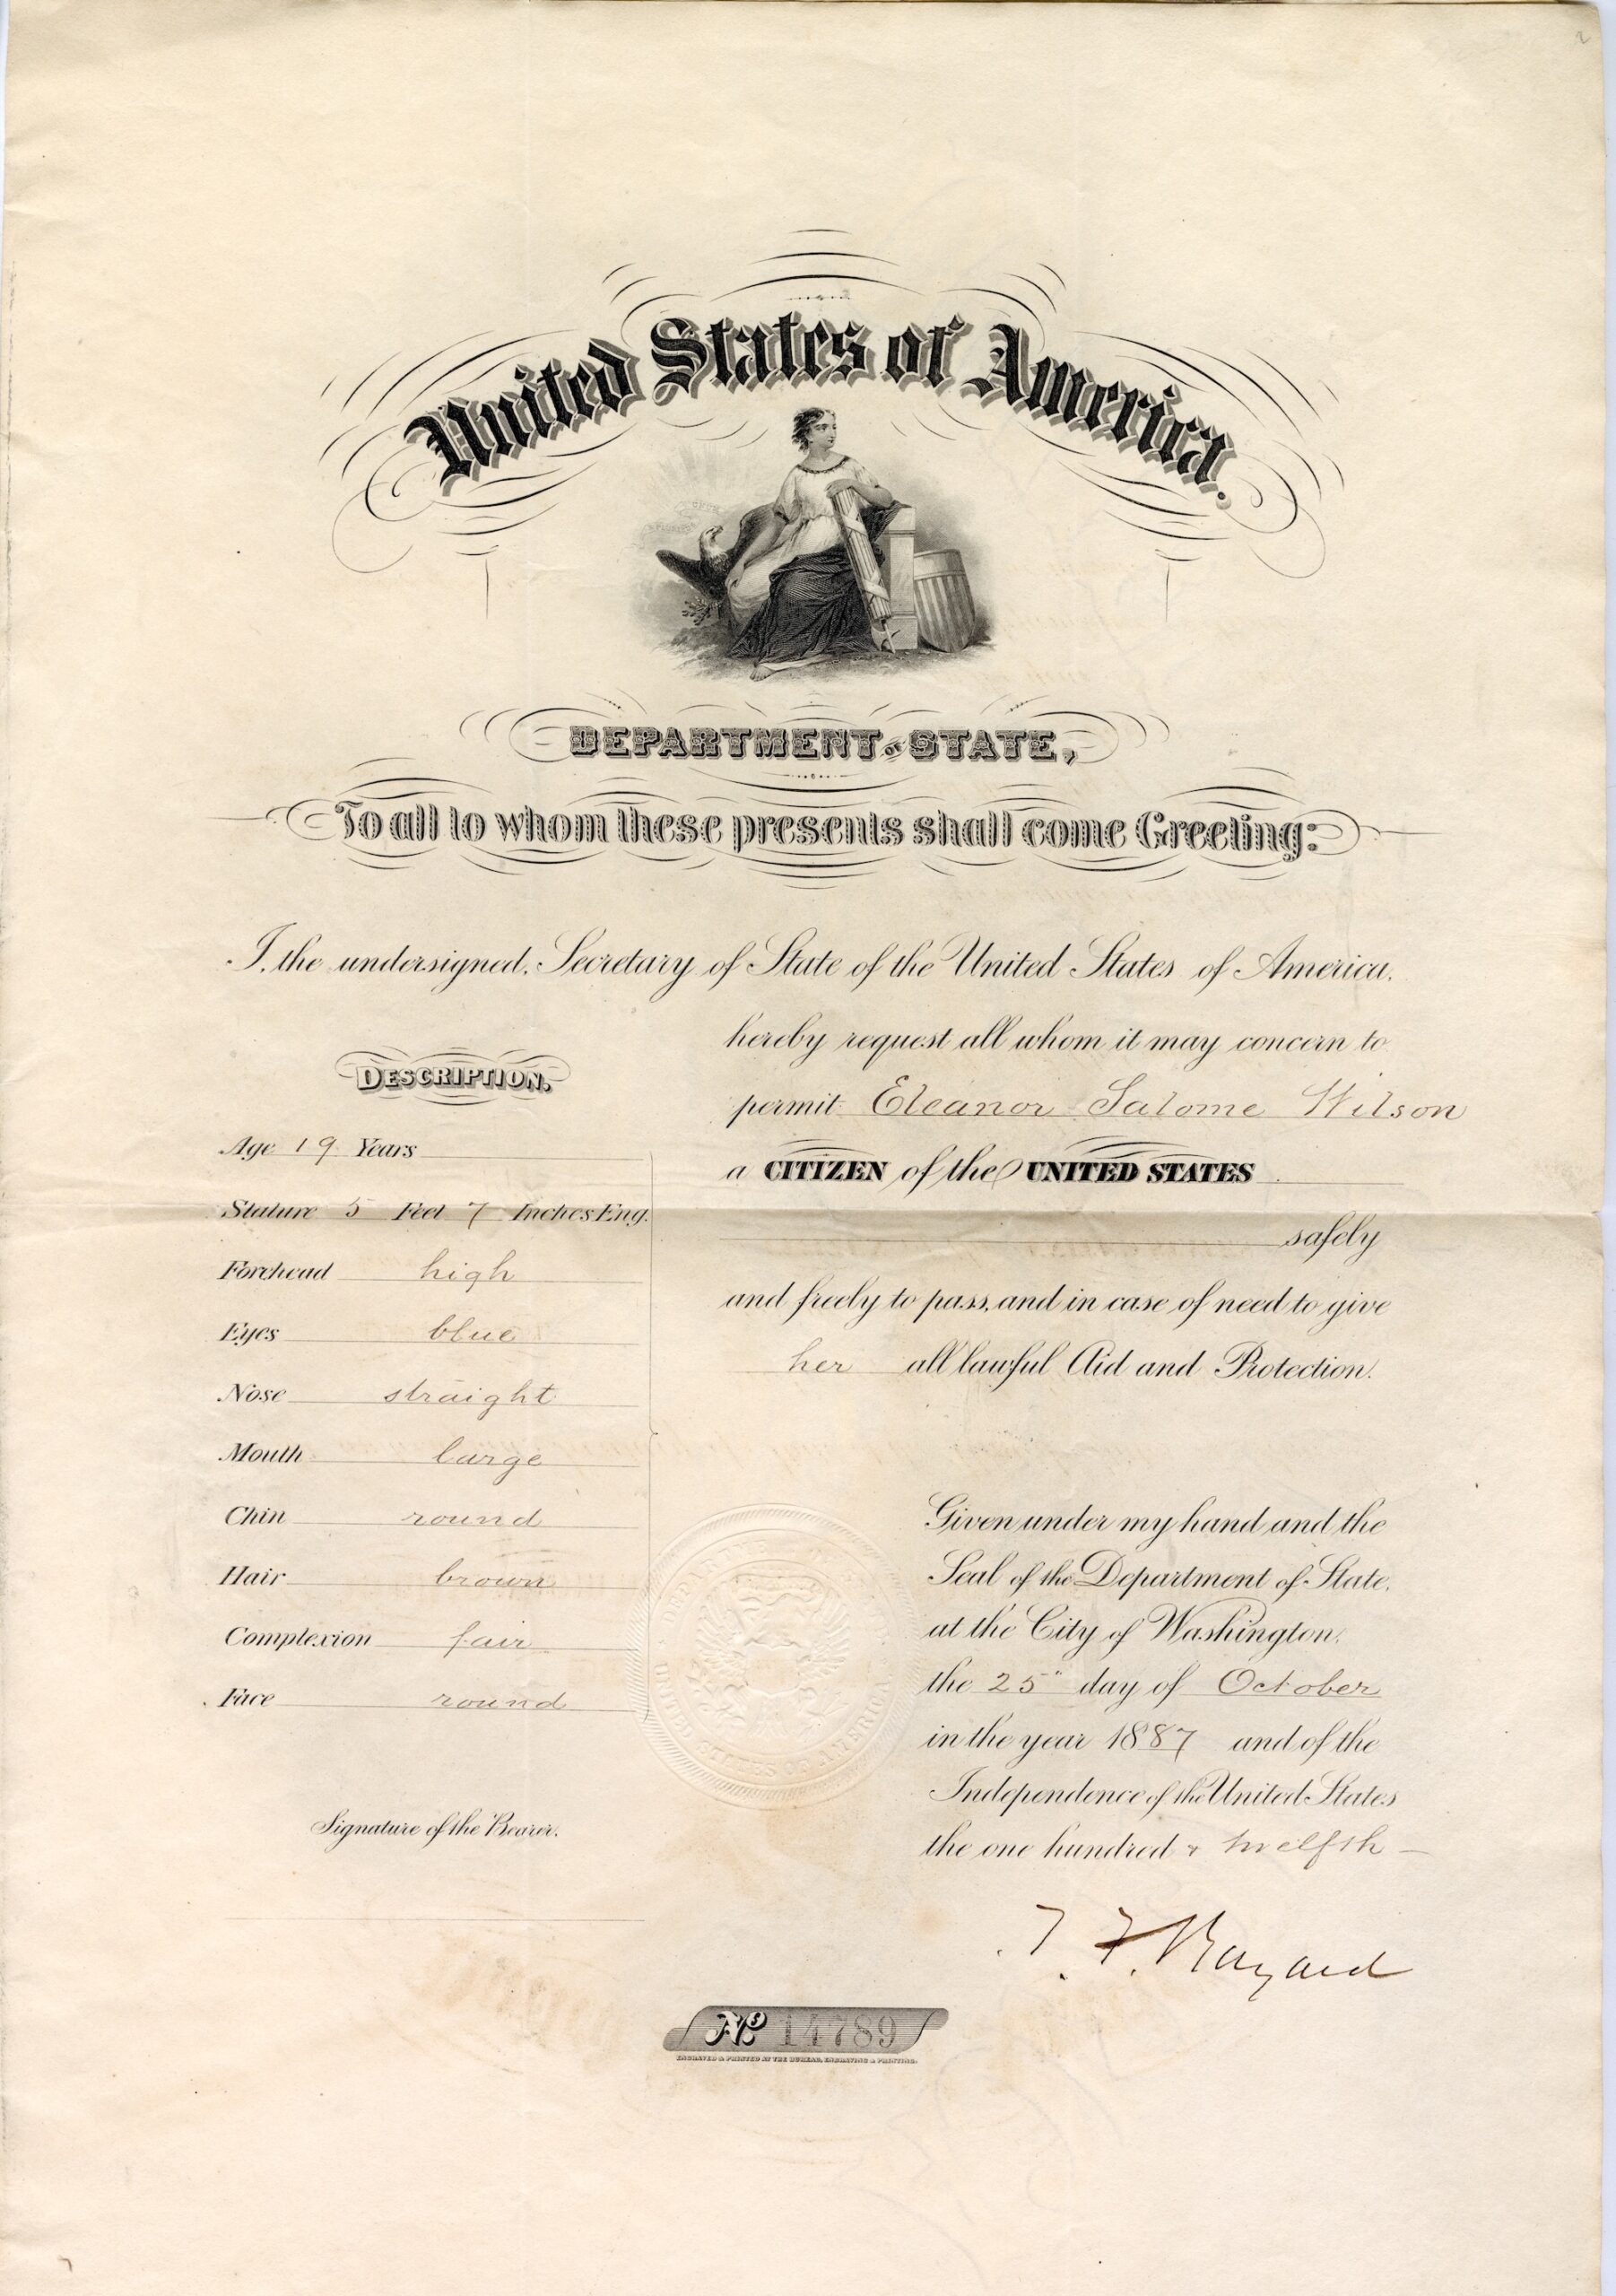 United States of America.
DEPARTMENT OF STATE,
To all to whom these presents shall come Greeting:
I, the undersigned, Secretary of State of the United States of America,
hereby request all whom it may concern to
permit Eleanor Salome Wilson
a CITIZEN of the UNITED STATES
safely
and freely to pass, and in case of need to give
her all lawful Aid and Protection.
DESCRIPTION.
Age 19 Years
Stature 5 Feet 7 Inches Eng.
Forehead high
Eyes blue
Nose straight
Mouth large
Chin round
Hair brown
Complexion fair
Face round
Signature of the Bearer.
Given under my hand and the
Seal of the Department of State,
at the City of Washington,
the 25" day of October
in the year 1887 and of the
Independence of the United States
the one hundred & twelfth
T. F. Bayard
DEPARTMENT OF STATE
UNITED STATES OF AMERICA
No 14789
ENGRAVED & PRINTED AT THE BUREAU, ENGRAVING & PRINTING.